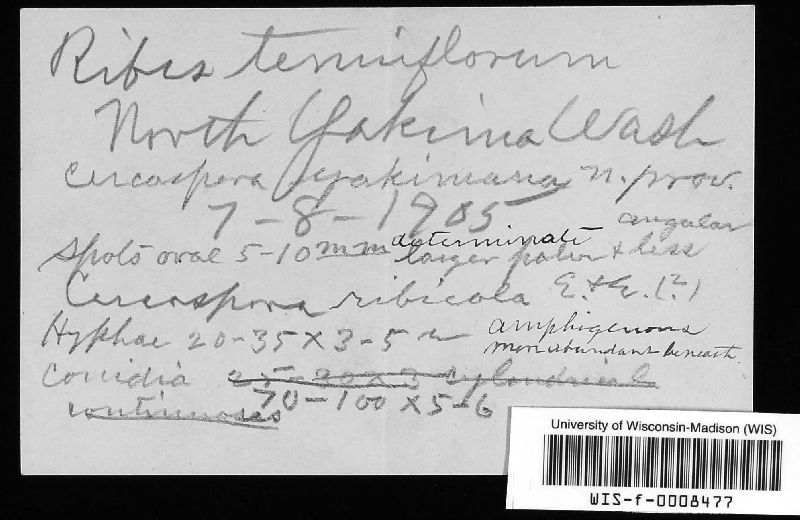 Ribes tenuiflorum
North Yakima Wash
Cercospora yakimana n. prov.
7-8-1905
angular
spots oval 5-10 mm determinate larger paler & less
Cercospora ribicola E. & E. (?)
Hyphae 20-35 x 3-5 u amphigenous
more abundant beneath.
Conidia 25-90 x 3 cylindrical
continuous 70-100 x 5-6
University of Wisconsin-Madison (WIS)
WIS-f-0008477